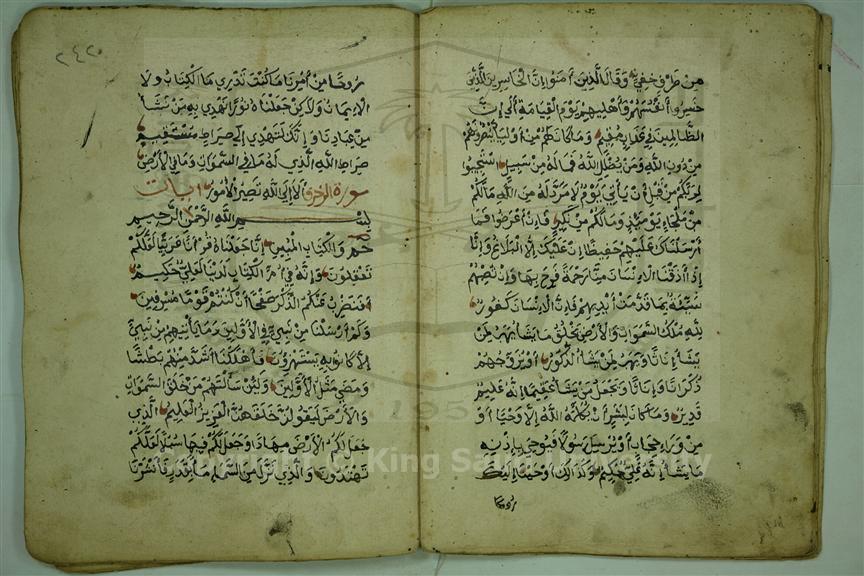 من طرف خفي وقال الذين امنوا ان الخاسرين الذين
خسروا انفسهم واهليهم يوم القيامة الا ان
الظالمين في عذاب مقيم وما كان لهم من اولياء ينصرونهم
من دون الله ومن يضلل الله فما له من سبيل استجيبوا
لربكم من قبل ان يأتي يوم لا مرد له من الله ما لكم
من ملجاء يومئذ وما لكم من نكير فان اعرضوا فما
ارسلناك عليهم حفيظا ان عليك الا البلاغ وانا
اذا اذقنا الانسان منا رحمة فرح بها وان تصبهم
سيئة بما قدمت ايديهم فان الانسان كفور
لله ملك السموات والارض يخلق ما يشاء يهب لمن
يشاء اناثا ويهب لمن يشاء الذكور او يزوجهم
ذكرانا واناثا ويجعل من يشاء عقيما انه عليم
قدير وما كان لبشر ان يكلمه الله الا وحيا او
من وراء حجاب او يرسل رسولا فيوحي باذنه
ما يشاء انه علي حكيم وكذلك اوحينا اليك
روحا
٢٤٢
روحا من امرنا ما كنت تدري ما الكتاب ولا
الايمان ولاكن جعلناه نورا نهدي به من نشاء
من عبادنا وانك لتهدي الى صراط مستقيم
صراط الله الذي له ما في السموات وما في الارض
سورة الزخرف الا الى الله تصير الامور ايات
بسم الله الرحمن الرحيم
حم والكتاب المبين انا جعلناه قرءانا عربيا لعلكم
تعقلون وانه في ام الكتاب لدينا لعلي حكيم
افنضرب عنكم الذكر صفحا ان كنتم قوما مسرفين
وكم ارسلنا من نبي في الاولين وما يأتيهم من نبي
الا كانوا به يستهزؤن فاهلكنا اشد منهم بطشا
ومضى مثل الاولين ولئن سألتهم من خلق السموات
والارض ليقولن خلقهن العزيز العليم الذي
جعل لكم الارض مهادا وجعل لكم فيها سبلا لعلكم
تهتدون والذي نزل من السماء ماء بقدر فانشرنا
Copyright © King Saud University
195